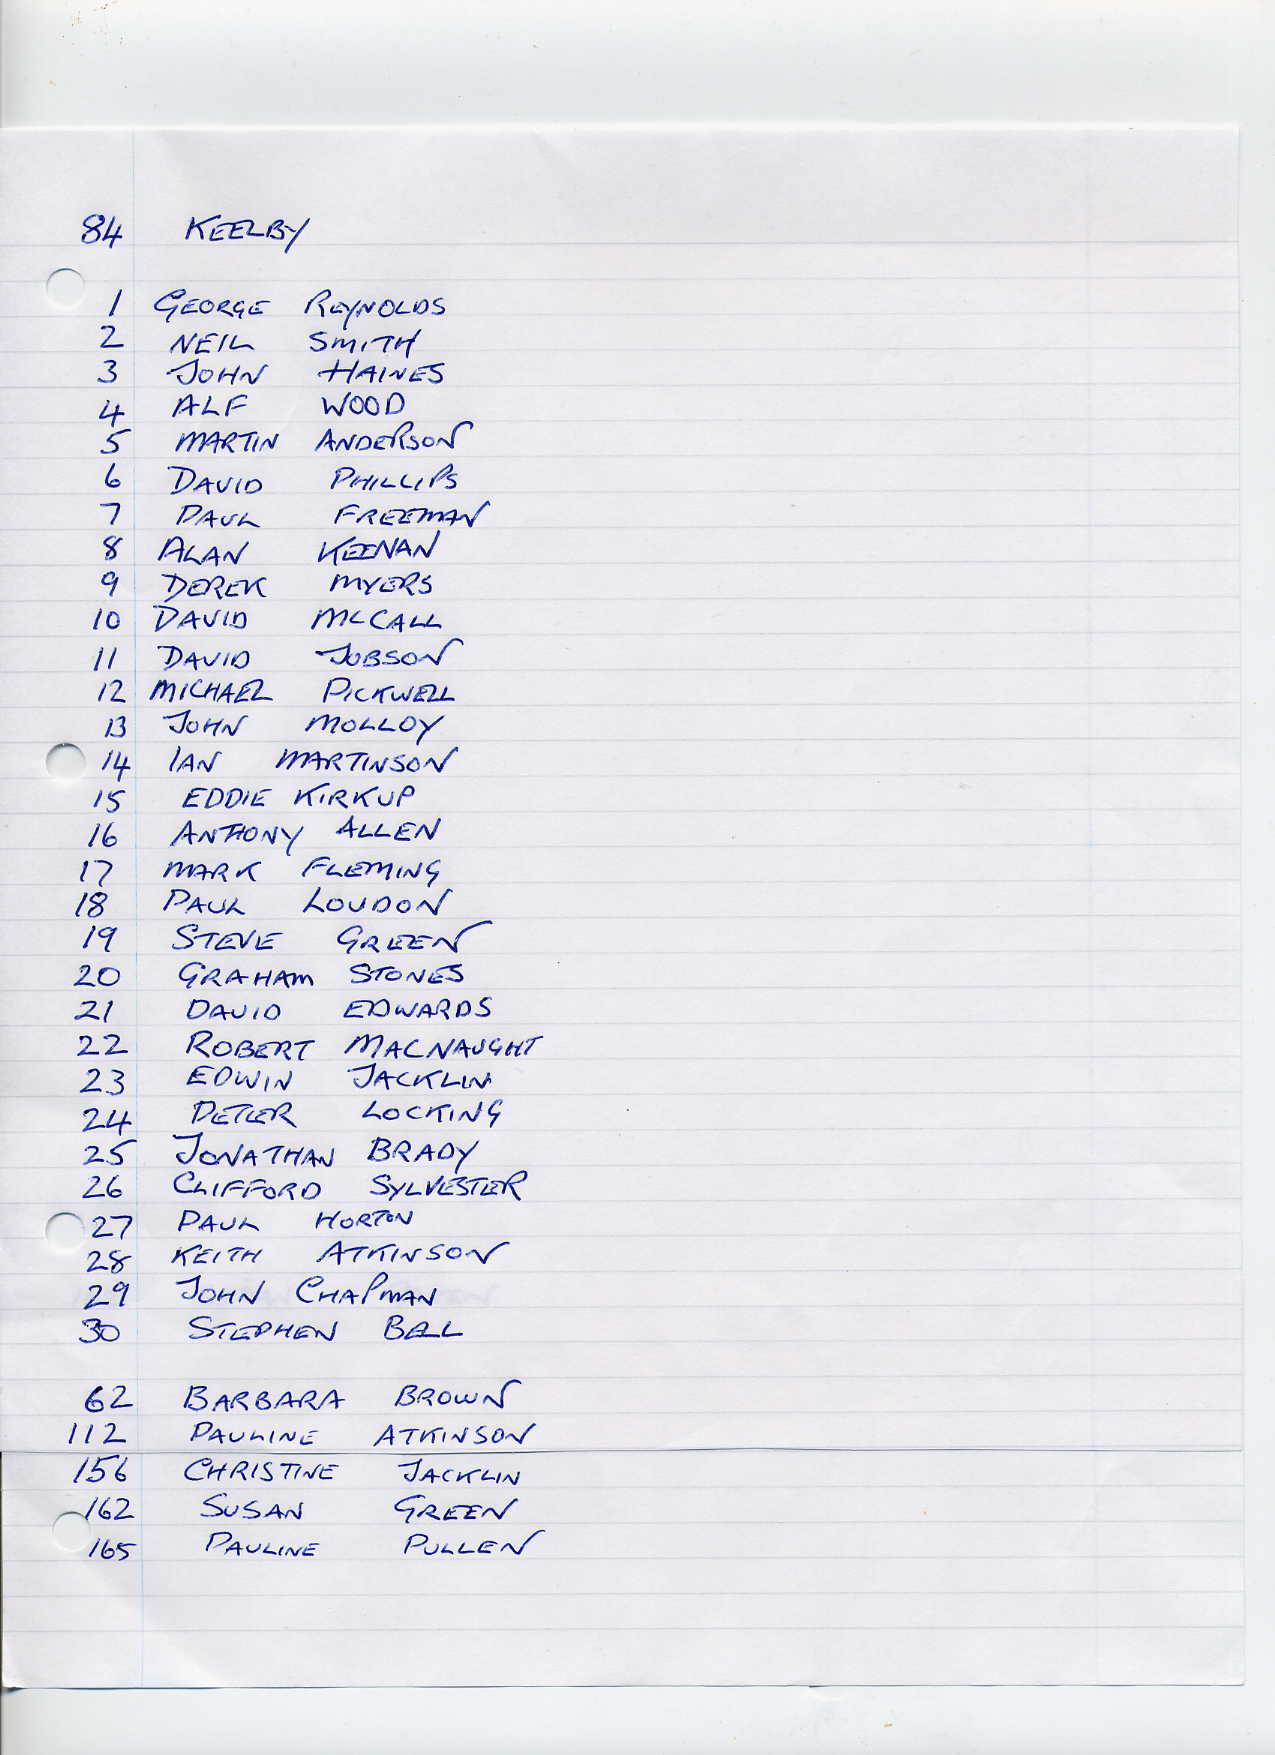 84 KEELBY
1 GEORGE REYNOLDS
2 NEIL SMITH
3 JOHN HAINES
4 ALF WOOD
5 MARTIN ANDERSON
6 DAVID PHILLIPS
7 PAUL FREEMAN
8 ALAN KEENAN
9 DEREK MYERS
10 DAVID McCALL
11 DAVID JOBSON
12 MICHAEL PICKWELL
13 JOHN MOLLOY
14 IAN MARTINSON
15 EDDIE KIRKUP
16 ANTHONY ALLEN
17 MARK FLEMING
18 PAUL LOUDON
19 STEVE GREEN
20 GRAHAM STONES
21 DAVID EDWARDS
22 ROBERT MACNAUGHT
23 EDWIN JACKLIN
24 PETER LOCKING
25 JONATHAN BRADY
26 CLIFFORD SYLVESTER
27 PAUL HORTON
28 KEITH ATKINSON
29 JOHN CHAPMAN
30 STEPHEN BALL
62 BARBARA BROWN
112 PAULINE ATKINSON
156 CHRISTINE JACKLIN
162 SUSAN GREEN
165 PAULINE PULLEN